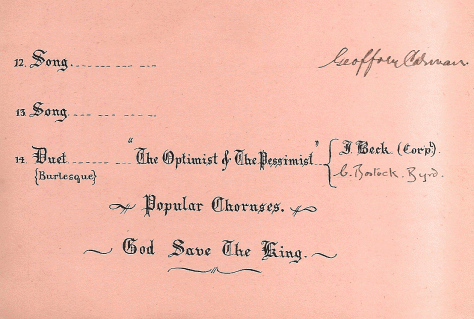 12. Song. Geoffrey
13. Song
14. Duet "The Optimist & The Pessimist" J. Beck (Corpl).
{Burlesque} C. Bostock. Byrd.
Popular Choruses.
God Save The King.